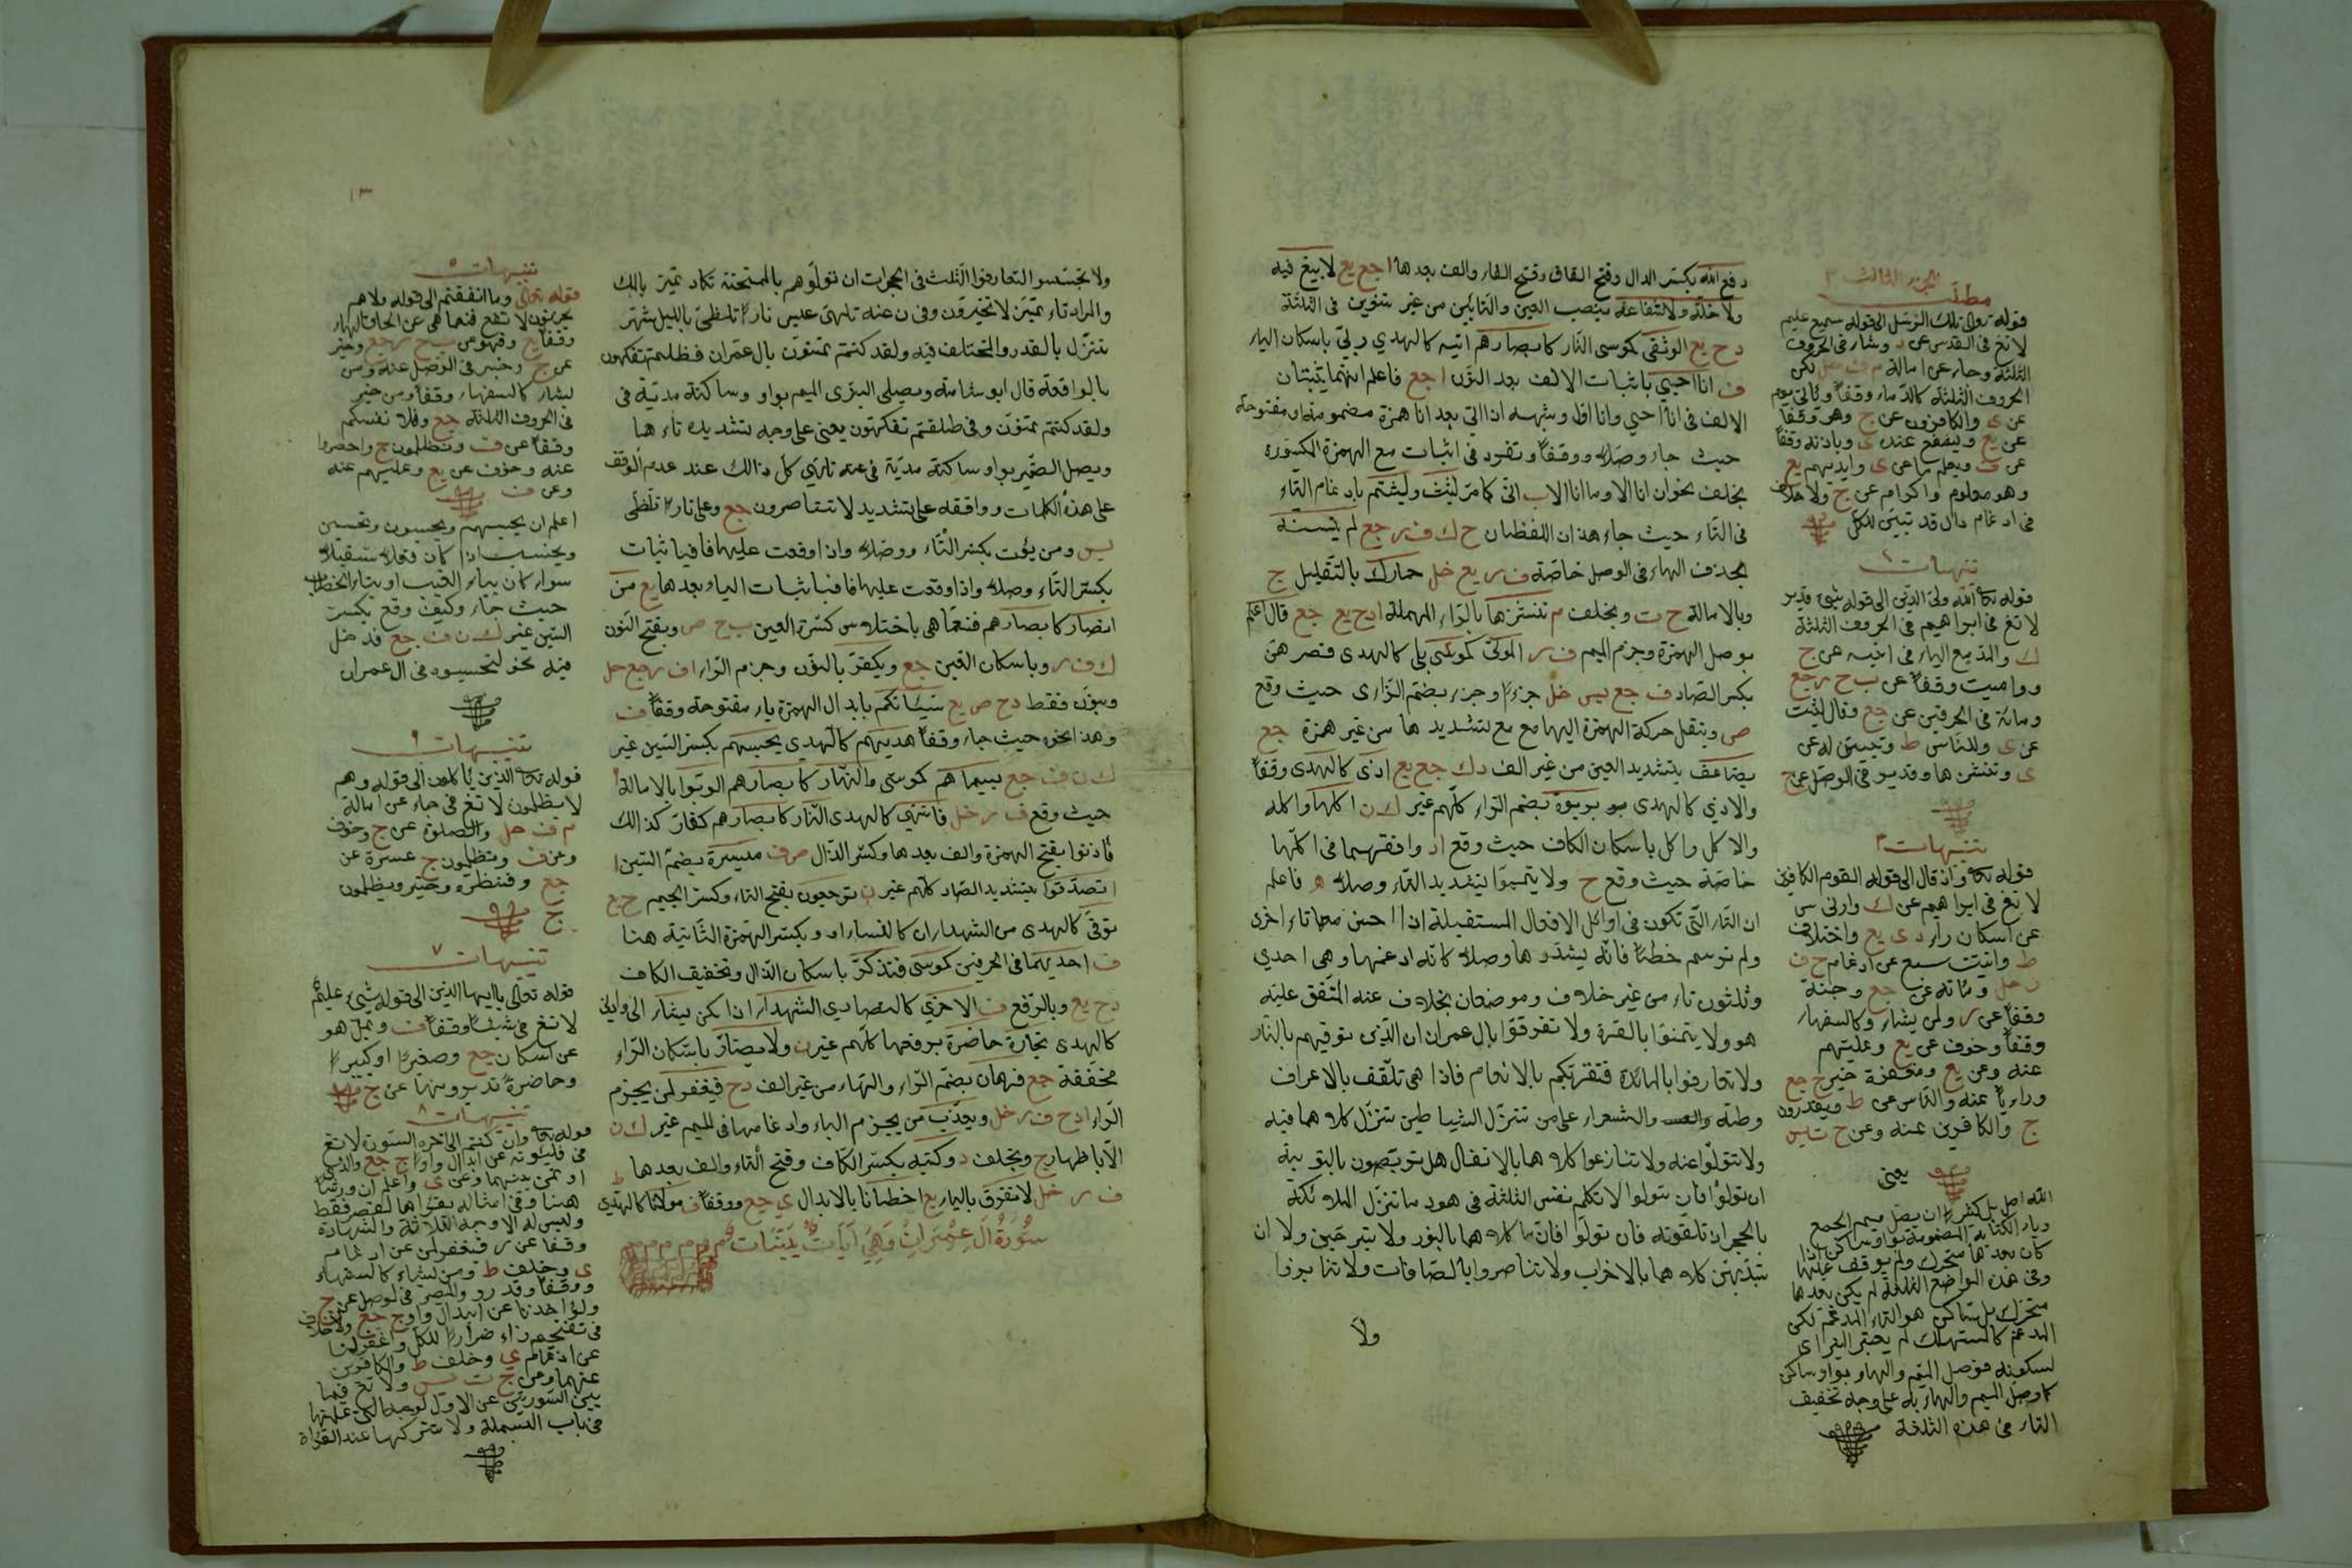 دفع الله بكسر الدال وفتح القاف وفتح الفاء والف بعدها ا جع يع لا بيع فيه
ولا خلة ولا شفاعة بنصب العين والتائين من غير تنوين في الثلثة
د ح يع الوثقى كموسى النار كابصارهم اتيه كالهدي ربي باسكان الياء
ف انا احيي باثبات الالف بعد النون ا جع فاعلم انهما يثبتان
الالف في انا احيي وانا اول وشبهه اذا اتى بعد انا همزة مضمومة او مفتوحة
حيث جاء وصلا ووقفا وتفرد في اثبات مع الهمزة المكسورة
بخلف نحو ان انا الا وما انا الا ب اتى كما مر لبثت ولبثتم بادغام الثاء
في التاء حيث جاء هذان اللفظان ح ك ف ر جع لم يتسنه
بحذف الهاء في الوصل خاصة ف ر يع خل حمارك بالتقليل ج
وبالامالة ح ت وبخلف م ننشزها بالراء المهملة ا د ح يع جع قال اعلم
بوصل الهمزة وجزم الميم ف ر الموتى كموسى بلى كالهدى فصرهن
بكسر الصاد ف جع يس خل جزءا وجزء بضم الزاى حيث وقع
ص وينقل حركة الهمزة اليها مع تشديدها من غير همزة جع
يضاعف بتشديد العين من غير الف د ك جع يع اذى كالهدى وقفا
والاذي كالهدى بربوة بضم الراء كلهم غير ك ن اكلها واكله
والاكل واكل باسكان الكاف حيث وقع ا د وافقهما في اكلها
خاصة حيث وقع ح ولا تيمموا بتشديد التاء وصلا ه فاعلم
ان التاء التي تكون في اوائل الافعال المستقبلة اذا حسن معها تاء اخرى
ولم ترسم خطا فانه يشددها وصلا كانه ادغمها وهي احدي
وثلثون تاء من غير خلاف وموضعان بخلاف عنه المتفق عليه
هو ولا تيمموا بالبقرة ولا تفرقوا بال عمران ان الذين توفيهم بالنساء
ولا تعاونوا بالمائدة فتفرق بكم بالانعام فاذا هي تلقف بالاعراف
وطه والشعراء على من تنزل الشياطين تنزل كلاهما فيه
ولا تولوا عنه ولا تنازعوا كلاهما بالانفال هل تربصون بالتوبة
ان تولوا فان تولوا لا تكلم نفس الثلثة في هود ما تنزل الملائكة
بالحجر ان تلقونه فان تولوا فانما كلاهما بالنور ولا تبرجن ولا ان
تبدلهن كلاهما بالاحزاب ولا تناصرون بالصافات ولا تنابزوا
ولا
الجزء الثالث
مطلب
قوله تعالى تلك الرسل الى قوله سميع عليم
لا تغ في القدس عن د وشاء في الحروف
الثلثة وجاء عن امالة م ف خل لكن
الحروف الثلثة كالدماء وقفا وياتي يوم
عن ى والكافرون عن ج وهو وقفا
عن يع ويشفع عنده ى وباذنه وقفا
عن ف ويعلم ما عن ى وايديهم يع
وهو معلوم واكرام عن ج ولا خلاف
في ادغام دال قد تبين للكل
تنبيهات
قوله تعالى الله ولي الذين الى قوله شيئ قدير
لا تغ في ابراهيم في الحروف الثلثة
ك والمد مع الياء في اتيه عن ج
ووامیت وقفا عن ب ح ر جع
ومائة في الحرفين عن جع وقال لبثت
عن ى وللناس ط وتبين له عن
ى وننشزها وقدير في الوصل عن ج
تنبيهات ٣
قوله تعالى واذ قال الى قوله القوم الكافرين
لا تغ في ابراهيم عن ك وارني س
عن اسكان راء د ى يع واختلاف
ط وانبتت سبع عن ادغام ح ف
ر خل ومائة عن جع وجنة
وقفا عن ر ولمن يشاء وكالسفهاء
وقفا وخوف عن يع وعليهم
عنه وعن يع ومغفرة خير ج جع
ورءاء عنه والناس عن ط ويقدرون
ج والكافرين عنه وعن ح ت يس
يعنى
الله اصل بن كثير ان يصل ميم الجمع
وياء الكناية المضمومة بواو ساكن اذا
كان بعدها متحرك ولم يوقف عليها
وفي هذه المواضع الثلثة لم يكن بعدها
متحرك بل ساكن هو التاء المدغم لكن
المدغم كالمستهلك لم يعتبر البزى
لسكونه فوصل الميم والهاء بواو ساكن
كما وصل الميم والهاء به على وجه تخفيف
التاء في هذه الثلثة
١٣
ولا تجسسوا لتعارفوا الثلث في الحجرات ان تولوهم بالممتحنة تكاد تميز بالملك
والمراد تاء تميز لا تخيرون وفي ن عنه تلهى عبس نارا تلظى بالليل شهر
تنزل بالقدر والمختلف فيه ولقد كنتم تمنون بال عمران فظلتم تفكهون
بالواقعة قال ابو شامة ويصلي البزى الميم بواو وساكنة مدية في
ولقد كنتم تمنون وفي ظلتم تفكهون يعنى على وجه تشديده تاءهما
ويصل الضمير بواو ساكنة مدية في عنه تلهي كل ذالك عند عدم الوقف
على هذه الكلمات ووافقه على تشديد لا تناصرون جع وعلى نارا تلظى
يس ومن يؤت بكسر التاء ووصلا واذا وقف عليها فباثبات
بكسر التاء وصلا واذا وقف عليها فباثبات الياء بعدها يع من
انصار كابصارهم فنعما هي باختلاس كسرة العين ب ح ص وبفتح النون
ك ف ر وباسكان العين جع ويكفر بالنون وجزم الراء ا ف ر جع خل
وبنون فقط د ح ص يع سيئاتكم بابدال الهمزة ياء مفتوحة وقفا ف
وهذا نحوه حيث جاء وقفا هديهم كالهدي يحسبهم بكسر السين غير
ك ن ف جع بسيماهم كموسى والنهار كابصارهم الربوا بالامالة
حيث وقع ف ر خل فانتهى كالهدى النار كابصارهم كفار كذالك
فأذنوا بفتح الهمزة والف بعدها وكسر الذال ص ف ميسرة بضم السين ا
تصدقوا بتشديد الصاد كلهم غير ن ترجعون بفتح التاء وكسر الجيم ح يع
توفى كالهدى من الشهداء ان كالنساء او وبكسر الهمزة الثانية هنا
ف احديهما في الحرفين كموسى فتذكر باسكان الذال وتخفيف الكاف
د ح يع وبالرفع ف الاخرى كالنصارى الشهداء اذا لكن يشاء الى وادنى
كالهدى تجارة حاضرة برفعهما كلهم غير ن ولا يضار باسكان الراء
مخففة جع فرهان بضم الراء والهاء من غير الف د ح فيغفر لمن بجزم
الراء ا د ح ف ر خل ويعذب من بجزم الباء وادغامها في الميم غير ك ن
الا باظهار ج وبخلف د وكتبه بكسر الكاف وفتح التاء والف بعدها ط
ف ر خل لا نفرق بالياء يع اخطانا بالابدال ي جع ووقفا ف مولانا كالهدي
سورة ال عمران وهي آيات بينات
تنبيهات ٥
قوله تعالى وما انفقتم الى قوله ولا هم
يحزنون لا تغ فنعما هي عن الحاق الهاء
وقفا يع وفهو عن ب ح ر جع وخير
عن ج وخبير في الوصل عنه ومن
يشاء كالسفهاء وقفا ومن خير
في الحروف الثلثة جع وفلا نفسكم
وقفا عن ف وتظلمون ج واحصروا
عنه وخوف عن يع وعليهم عنه
وعن ف
اعلم ان يحسبهم ويحسبون وتحسبن
ويحسب اذا كان فعلا مستقبلا
سواء كان بياء الغيب او بتاء الخطاب
حيث جاء وكيف وقع بكسر
السين غير ك ن ف جع قد دخل
فيه نحو لتحسبوه في ال عمران
تنبيهات ٦
قوله تعالى الذين ياكلون الى قوله وهم
لا يظلمون لا تغ في جاء عن امالة
م ف خل والصلوة عن ج وخوف
وعن ف وتظلمون ج عسرة عن
جع وفنظرة وخير ويظلمون
ج
تنبيهات ٧
قوله تعالى يا ايها الذين الى قوله شيئ عليم
لا تغ في شيئا وقفا ف ويمل هو
عن اسكان جع وصغيرا او كبيرا
وحاضرة تديرونها عن ج
تنبيهات ٨
قوله تعالى وان كنتم الى آخره السورة لا تغ
في فليؤد عن ابدال واوا ج جع والذي
اوتمن يبدلهما وعن ى واعلم ان ورشا
وليس له الا وجه الثلاثة والشهادة
وقفا عن ر فيغفر لمن عن ادغام
ى وخلف ط ومن يشاء كالسفهاء
ووقفا وقدير والمصير في الوصل عن ج
ولا تؤاخذنا عن ابدال واو ج جع ولا خلاف
عن ادغام ي وخلف ط والكافرين
عنهما وعن ج ت يس ولا تغ فيما
بين السورتين عن الاول لوجه التى علمتها
في باب البسملة ولا تتركها عند القراة